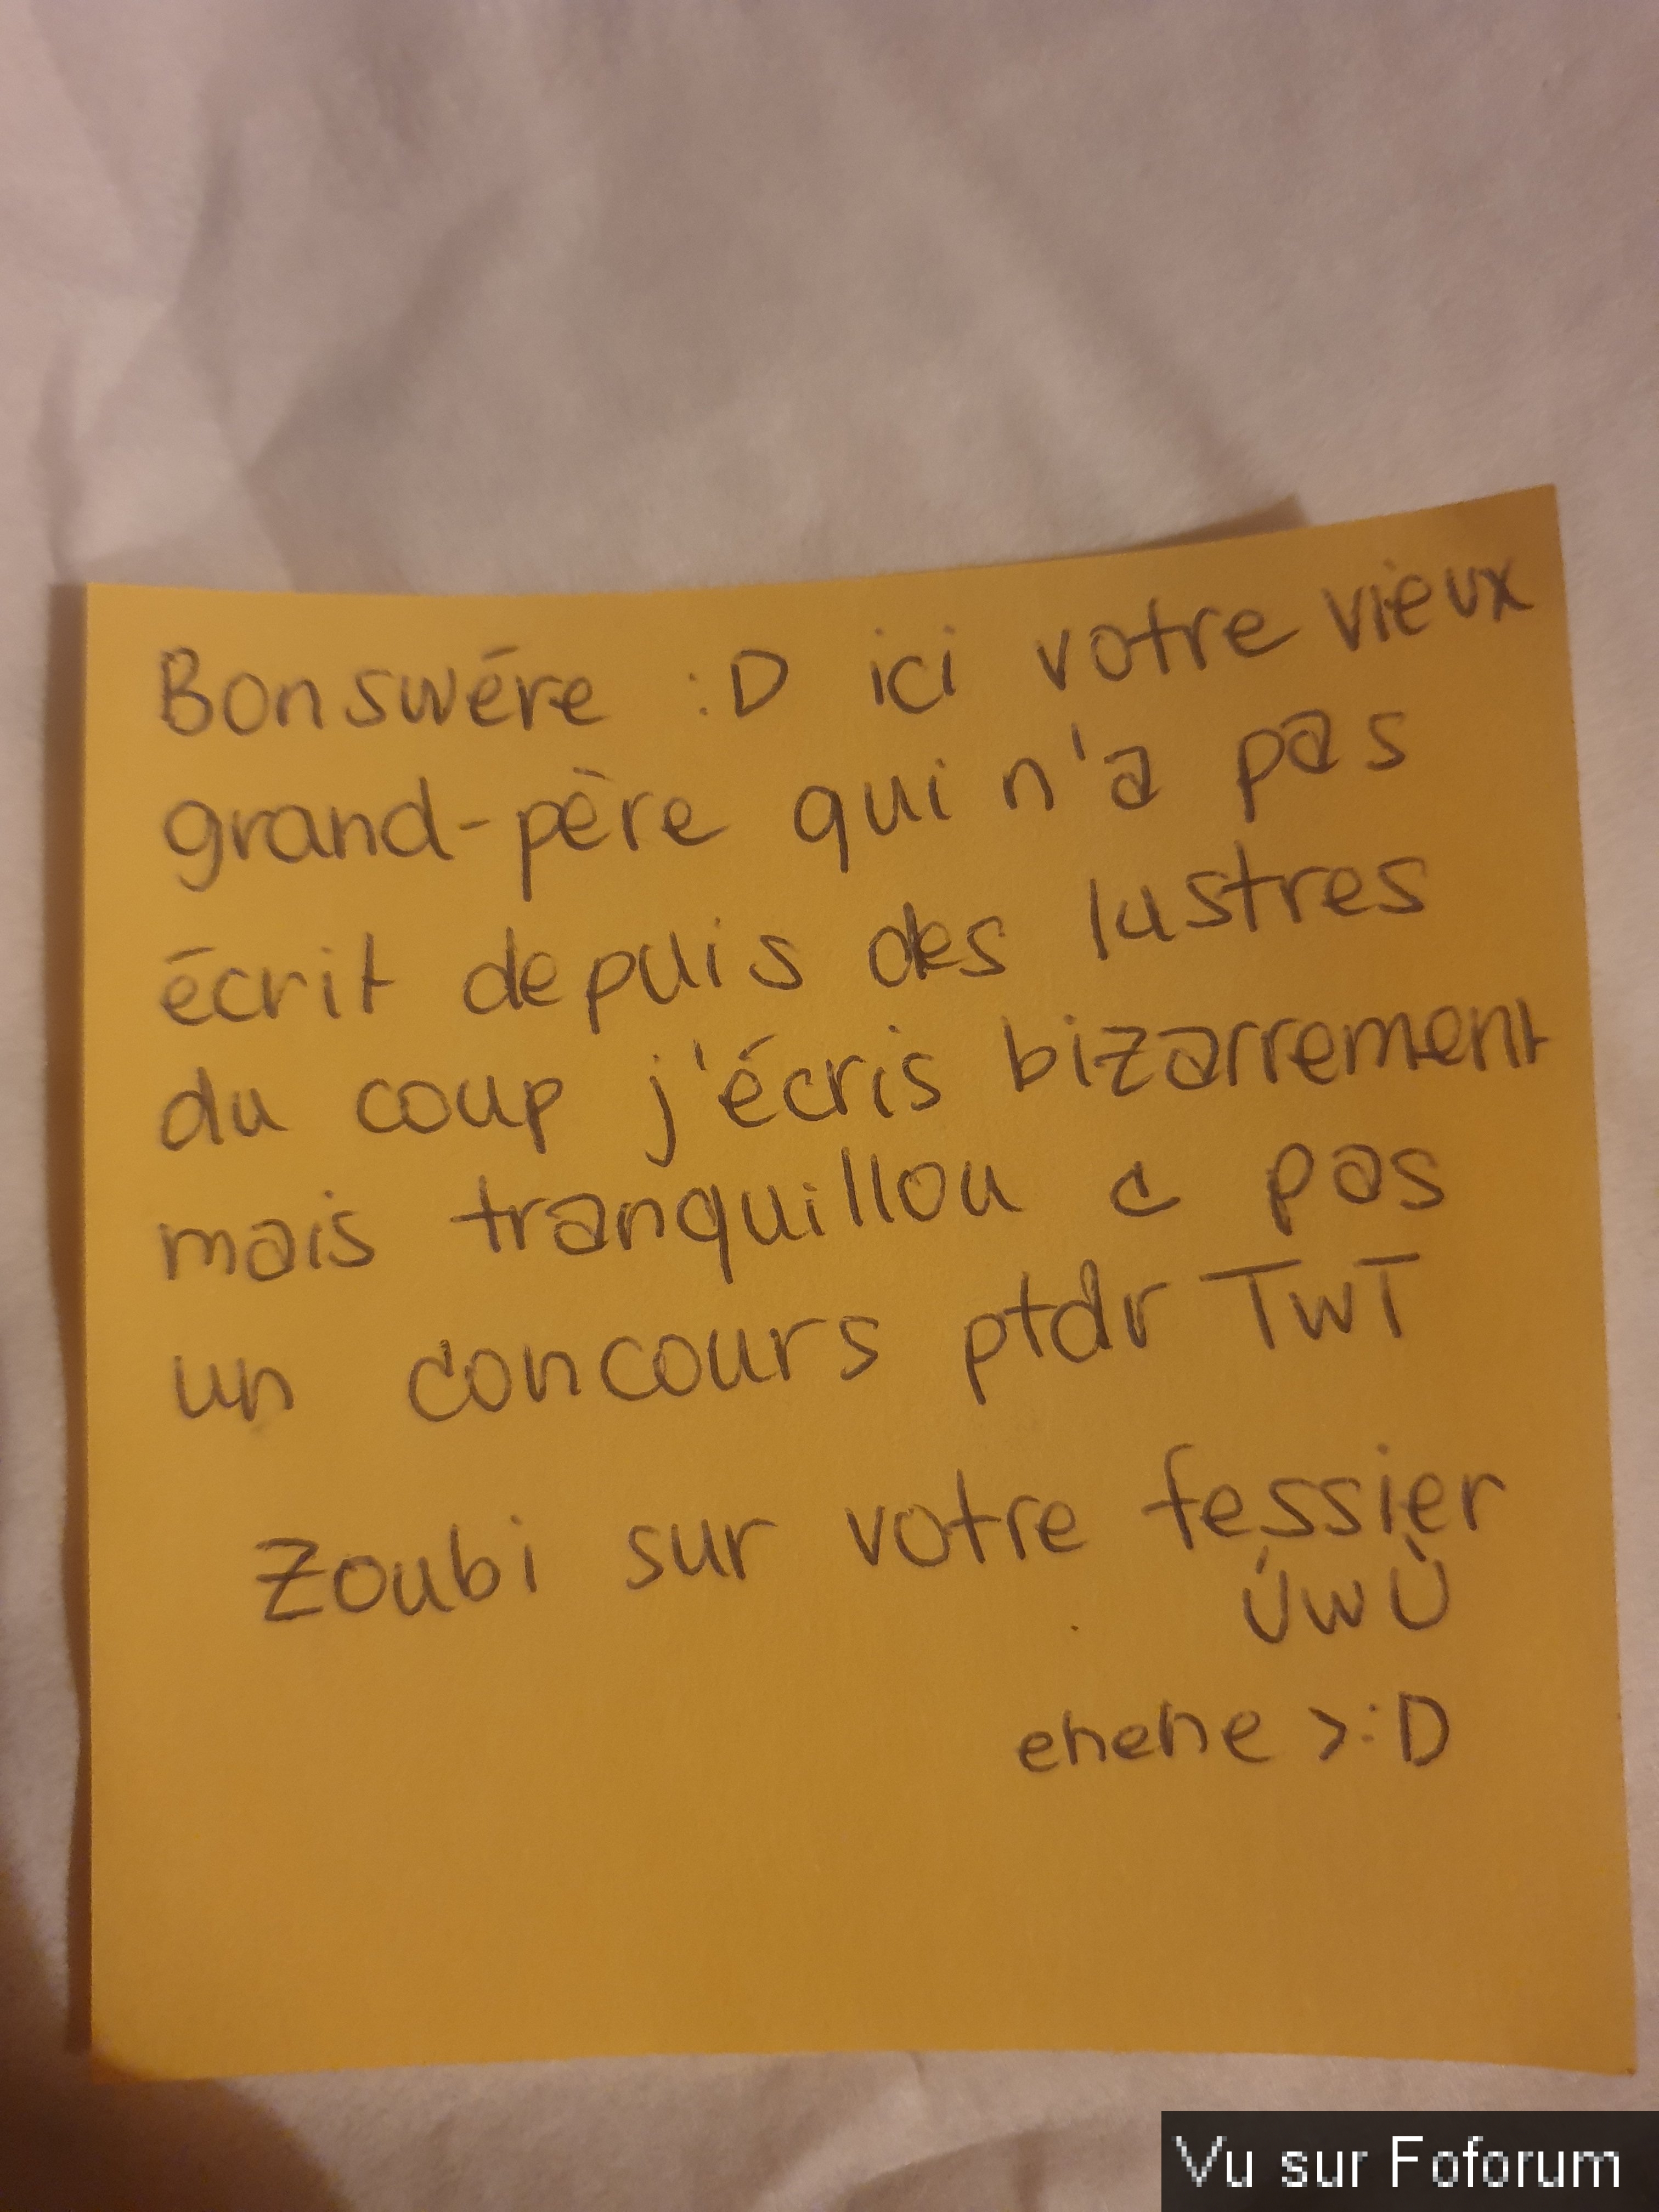 Bonswére :D ici votre vieux
grand-père qui n'a pas
écrit depuis des lustres
du coup j'écris bizarrement
mais tranquillou c pas
un concours ptdr TwT
Zoubi sur votre fessier
ÚwÙ
ehehe >:D
Vu sur Foforum